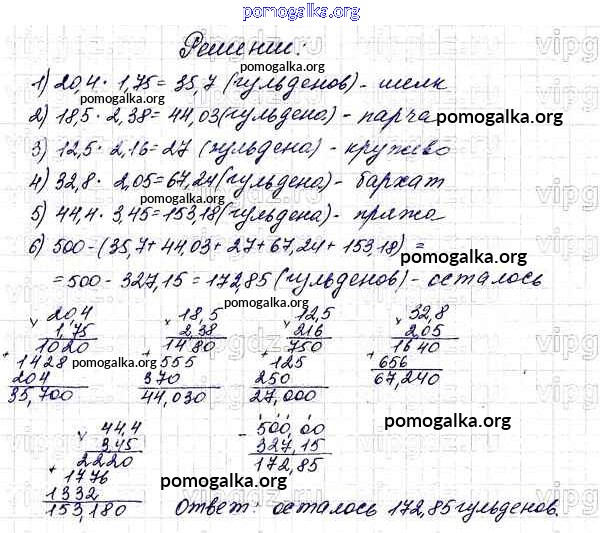 pomogalka.org
Решение:
1) 20,4 · 1,75 = 35,7 (гульденов) - шелк
pomogalka.org
2) 18,5 · 2,38 = 44,03 (гульдена) - парча
pomogalka.org
3) 12,5 · 2,16 = 27 (гульдена) - кружево
4) 32,8 · 2,05 = 67,24 (гульдена) - бархат
pomogalka.org
5) 44,4 · 3,45 = 153,18 (гульдена) - пряжа
6) 500 - (35,7 + 44,03 + 27 + 67,24 + 153,18) =
pomogalka.org
= 500 - 327,15 = 172,85 (гульденов) - осталось
pomogalka.org
× 20,4 × 18,5 × 12,5 × 32,8
1,75 2,38 216 205
1020 1480 750 1640
+ 1428 + 555 + 125 + 656
pomogalka.org
204 370 250 67,240
35,700 44,030 27,000
pomogalka.org
× 44,4 - 500,00
3,45 327,15
2220 172,85
+ 1776
pomogalka.org
1332
153,180
Ответ: осталось 172,85 гульденов.
vipgdz.ru